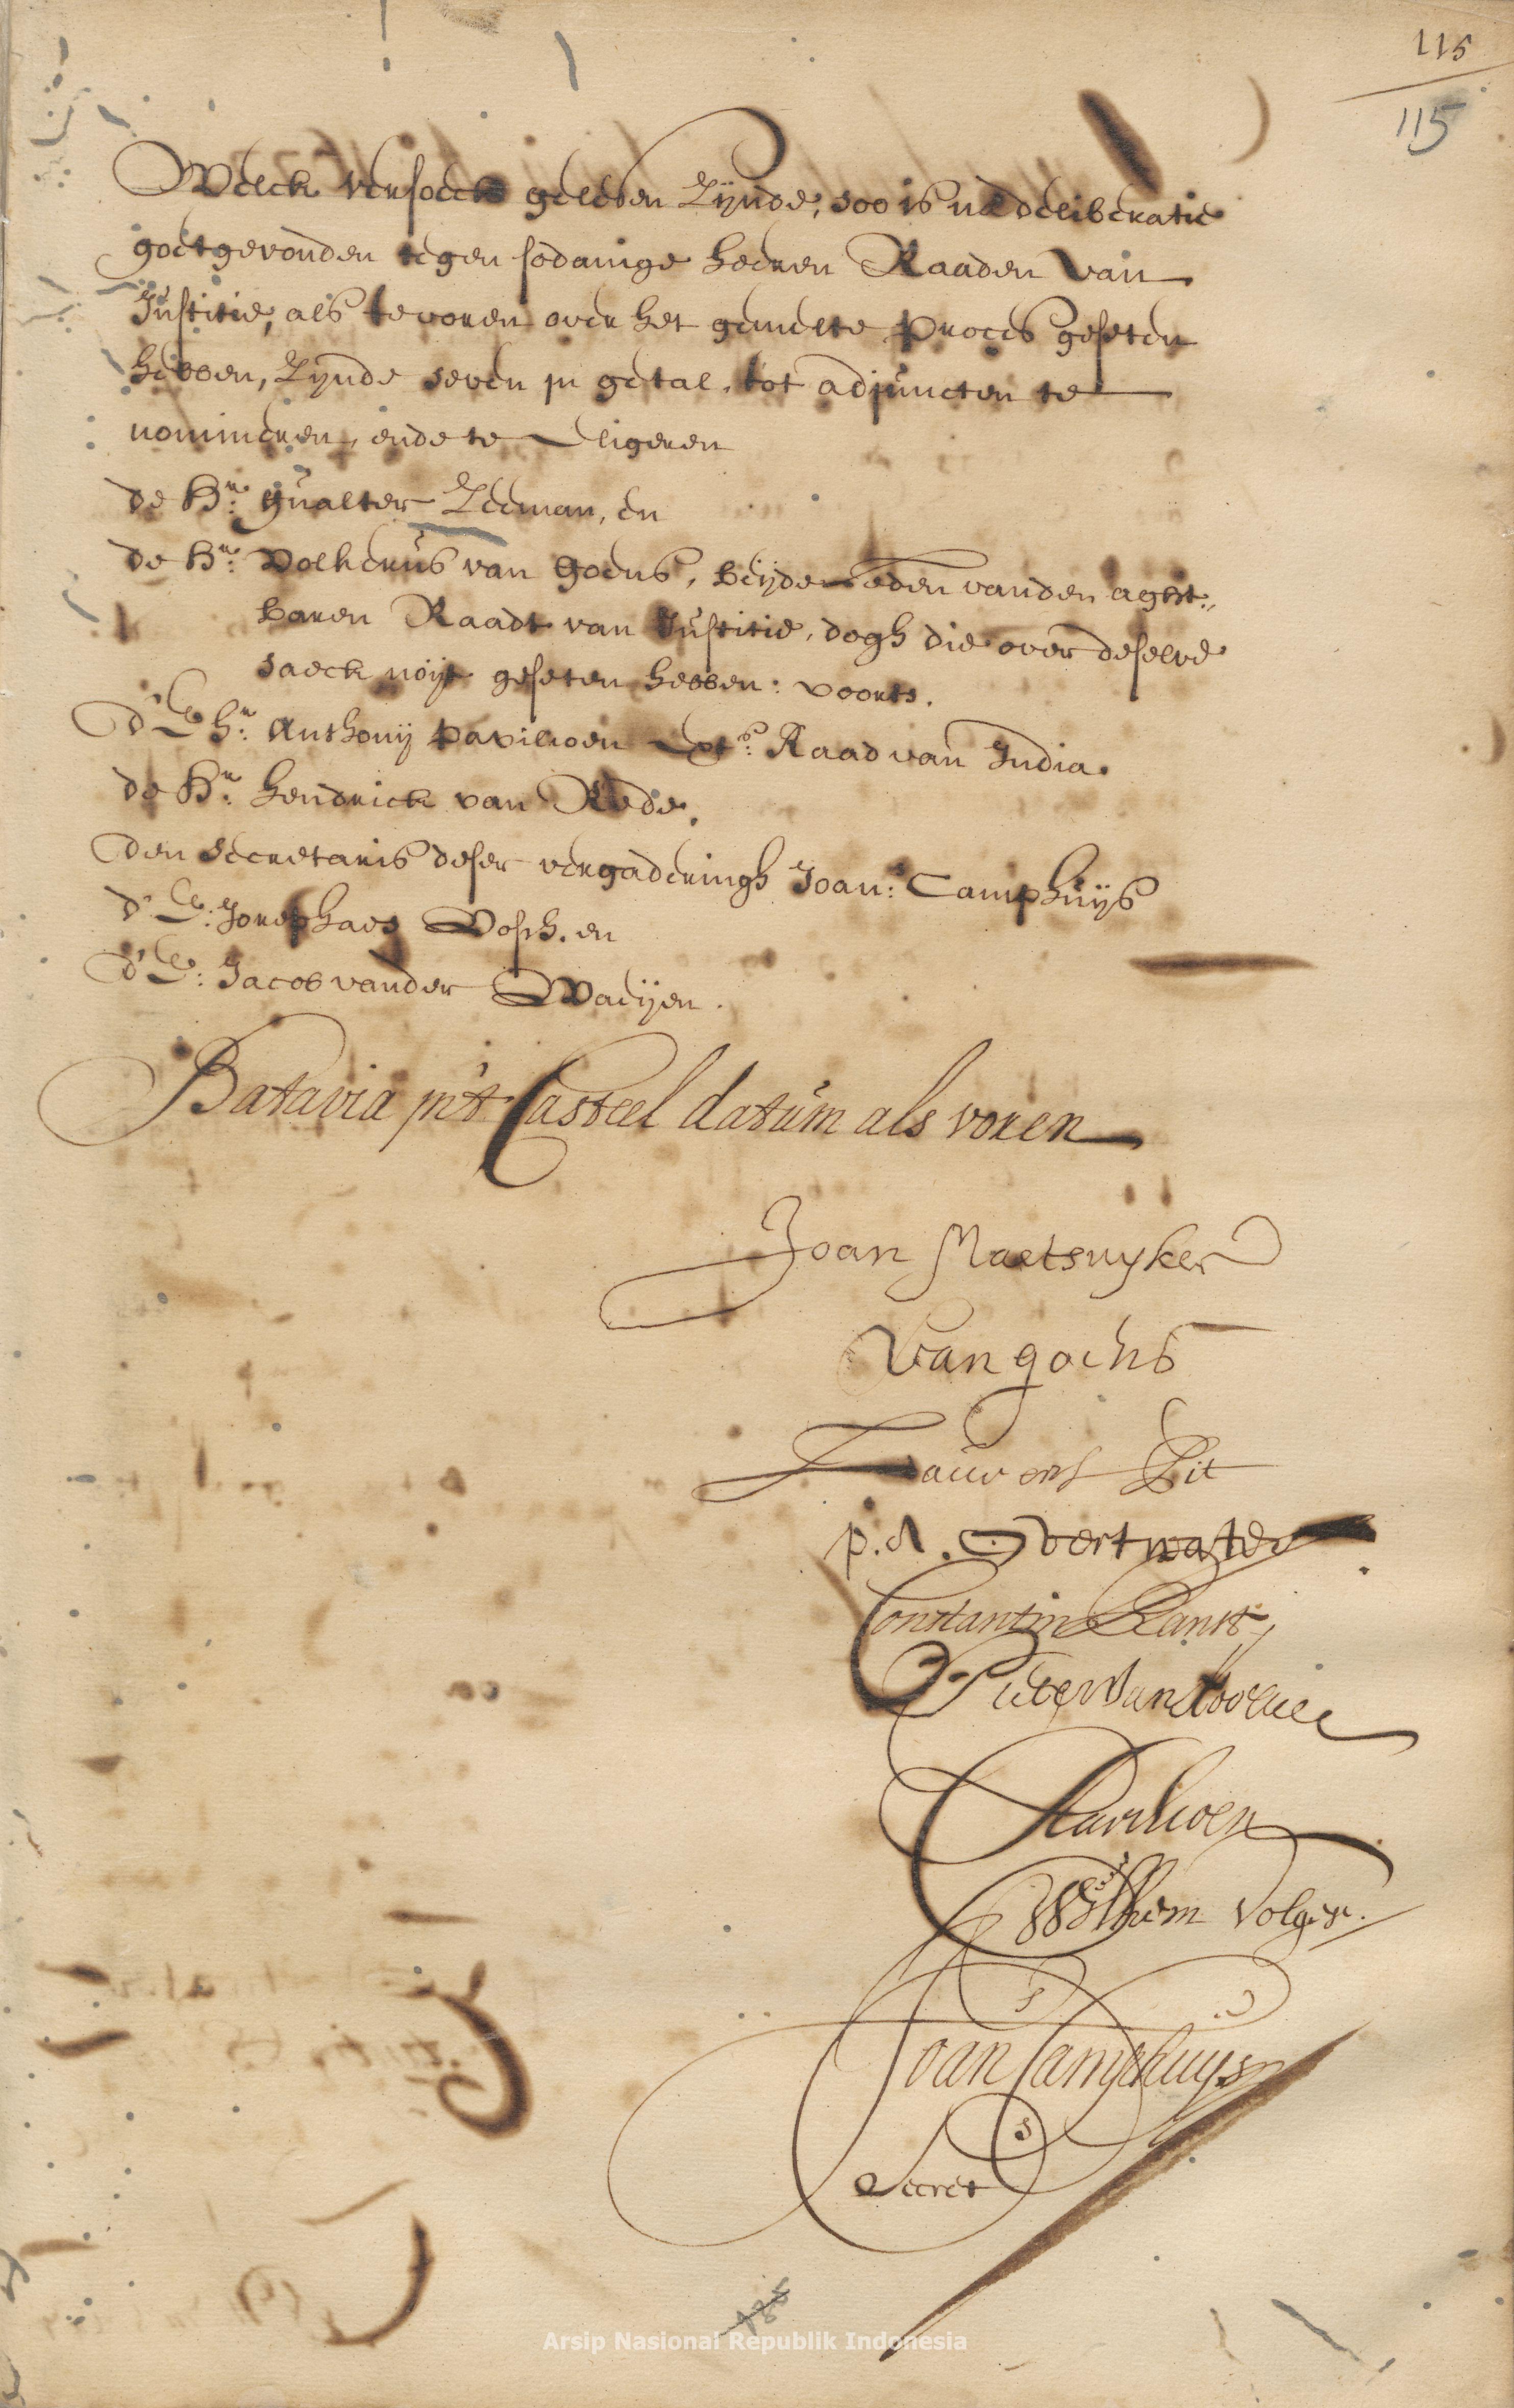 115
115
Welck versoeck gelesen zijnde, soo is na deliberatie
goetgevonden tegen sodanige heeren Raaden van
Justitie, als te voren over het gemelte proces geseten
hebben, zijnde seven in getal, tot adjuncten te
nomineren, ende te eligeren
de Hr: Gualter Zeeman, en
de Hr: Volkerus van Goens, beijde leden vanden aght„
baren Raadt van Justitie, dogh die over deselve
saeck noijt geseten hebben: voorts.
d' E hr: Anthonij Pavilioen Raad van India.
de Hr: hendrick van Rede,
den secretaris deser vergaderingh Joan: Camphuijs
d' E: Josephaes Vosch. en
d' E: Jacob vander Waeijen.
Batavia in't Casteel datum als voren
Joan Maetsuyker
Van goens
Lauwens Pit
p. A. Overtwater
Constantin Ranst
Pieter van Hoorn
Pavilioen
Willhem Volger.
Joan Camphuijs
Secret s
Arsip Nasional Republik Indonesia